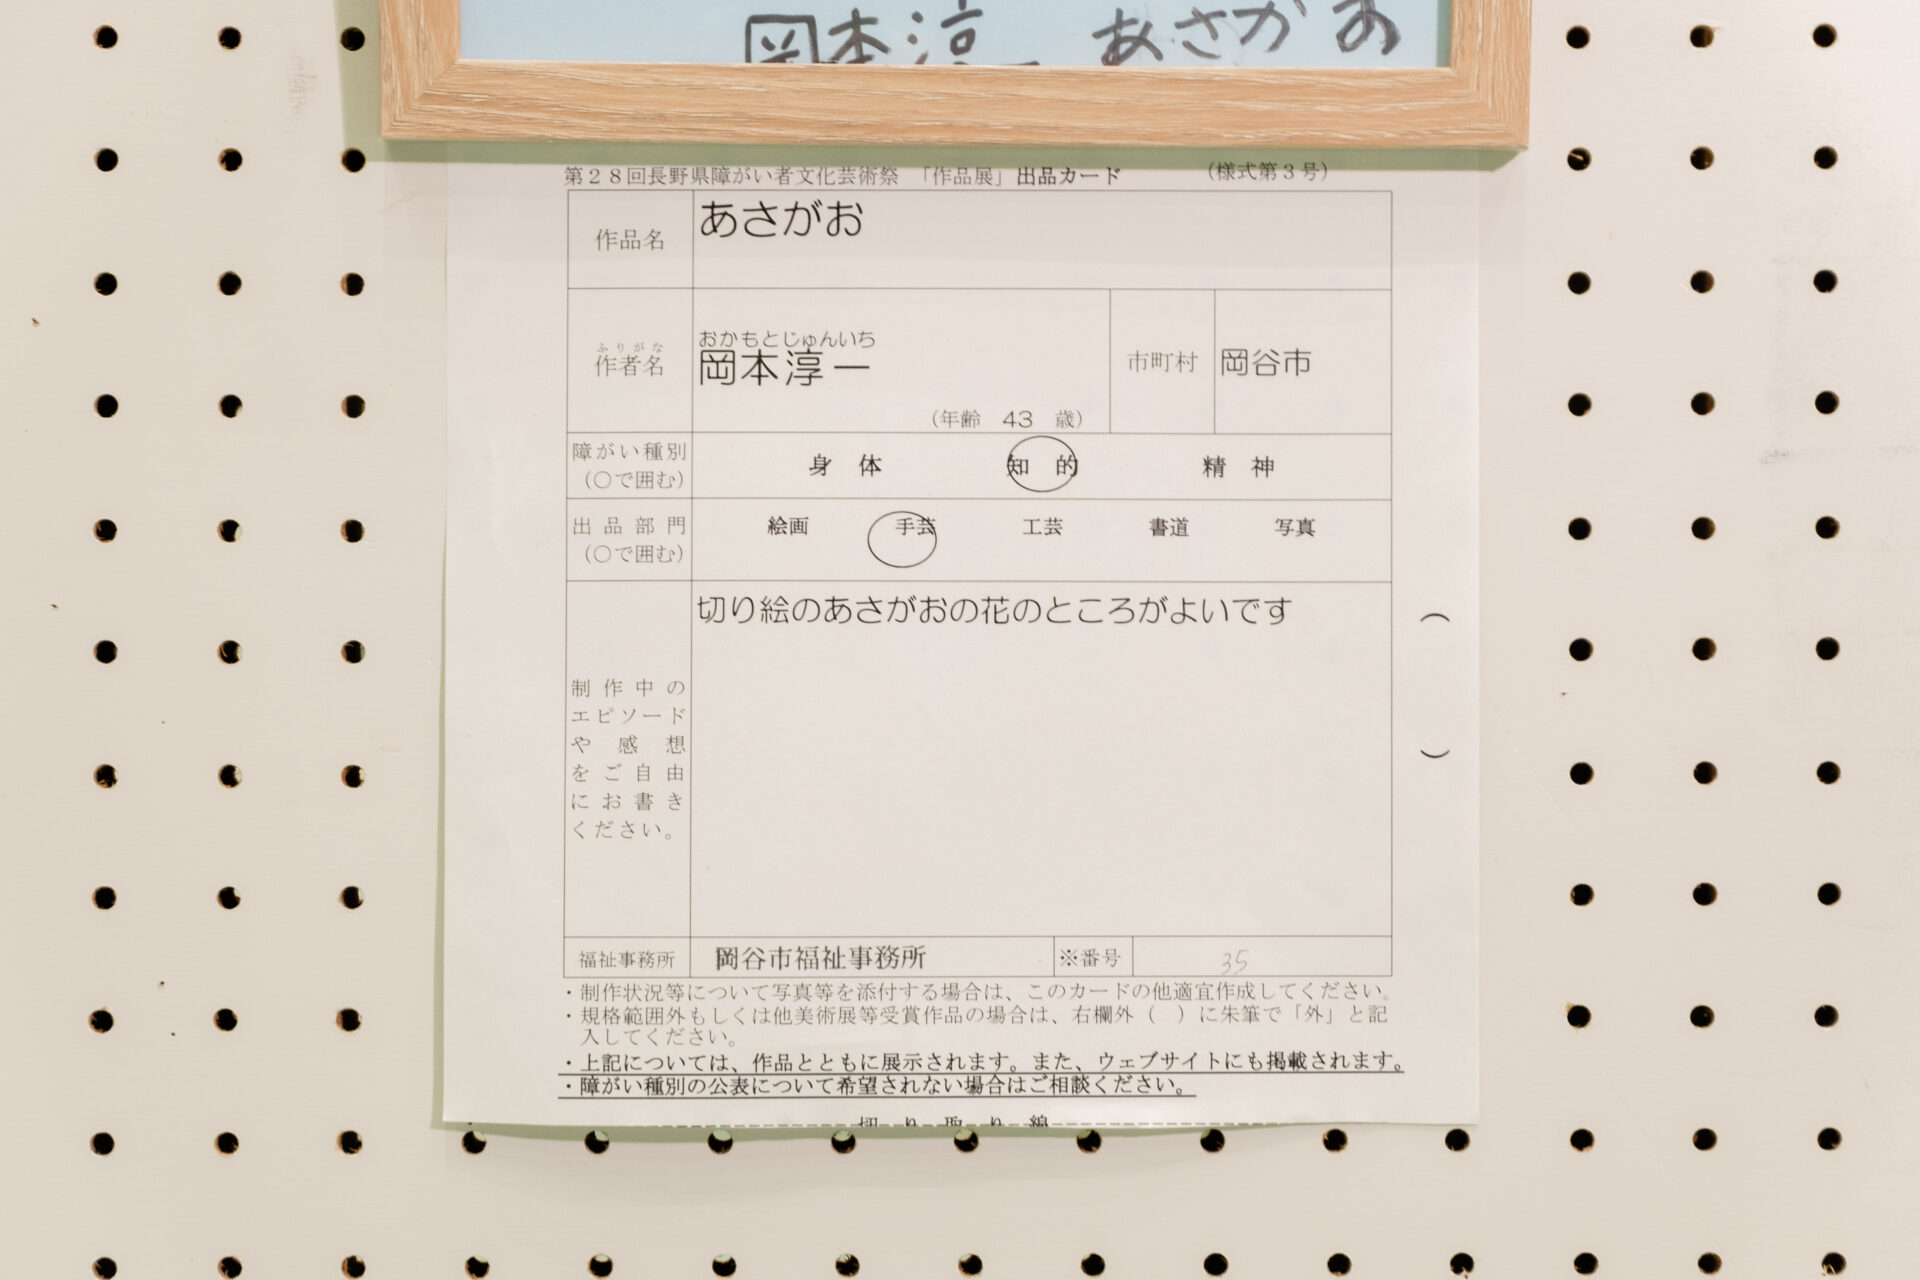 岡本淳一 あさがお
第28回長野県障がい者文化芸術祭 「作品展」出品カード (様式第3号)
作品名 あさがお
ふりがな おかもとじゅんいち
作者名 岡本淳一 市町村 岡谷市
(年齢 43 歳)
障がい種別 身体 知的 精神
(○で囲む)
出品部門 絵画 手芸 工芸 書道 写真
(○で囲む)
切り絵のあさがおの花のところがよいです
制作中の
エピソード
や感想
をご自由
にお書き
ください。
( )
福祉事務所 岡谷市福祉事務所 ※番号 35
・制作状況等について写真等を添付する場合は、このカードの他適宜作成してください。
・規格範囲外もしくは他美術展等受賞作品の場合は、右欄外( )に朱筆で「外」と記
入してください。
・上記については、作品とともに展示されます。また、ウェブサイトにも掲載されます。
・障がい種別の公表について希望されない場合はご相談ください。
切り取り線